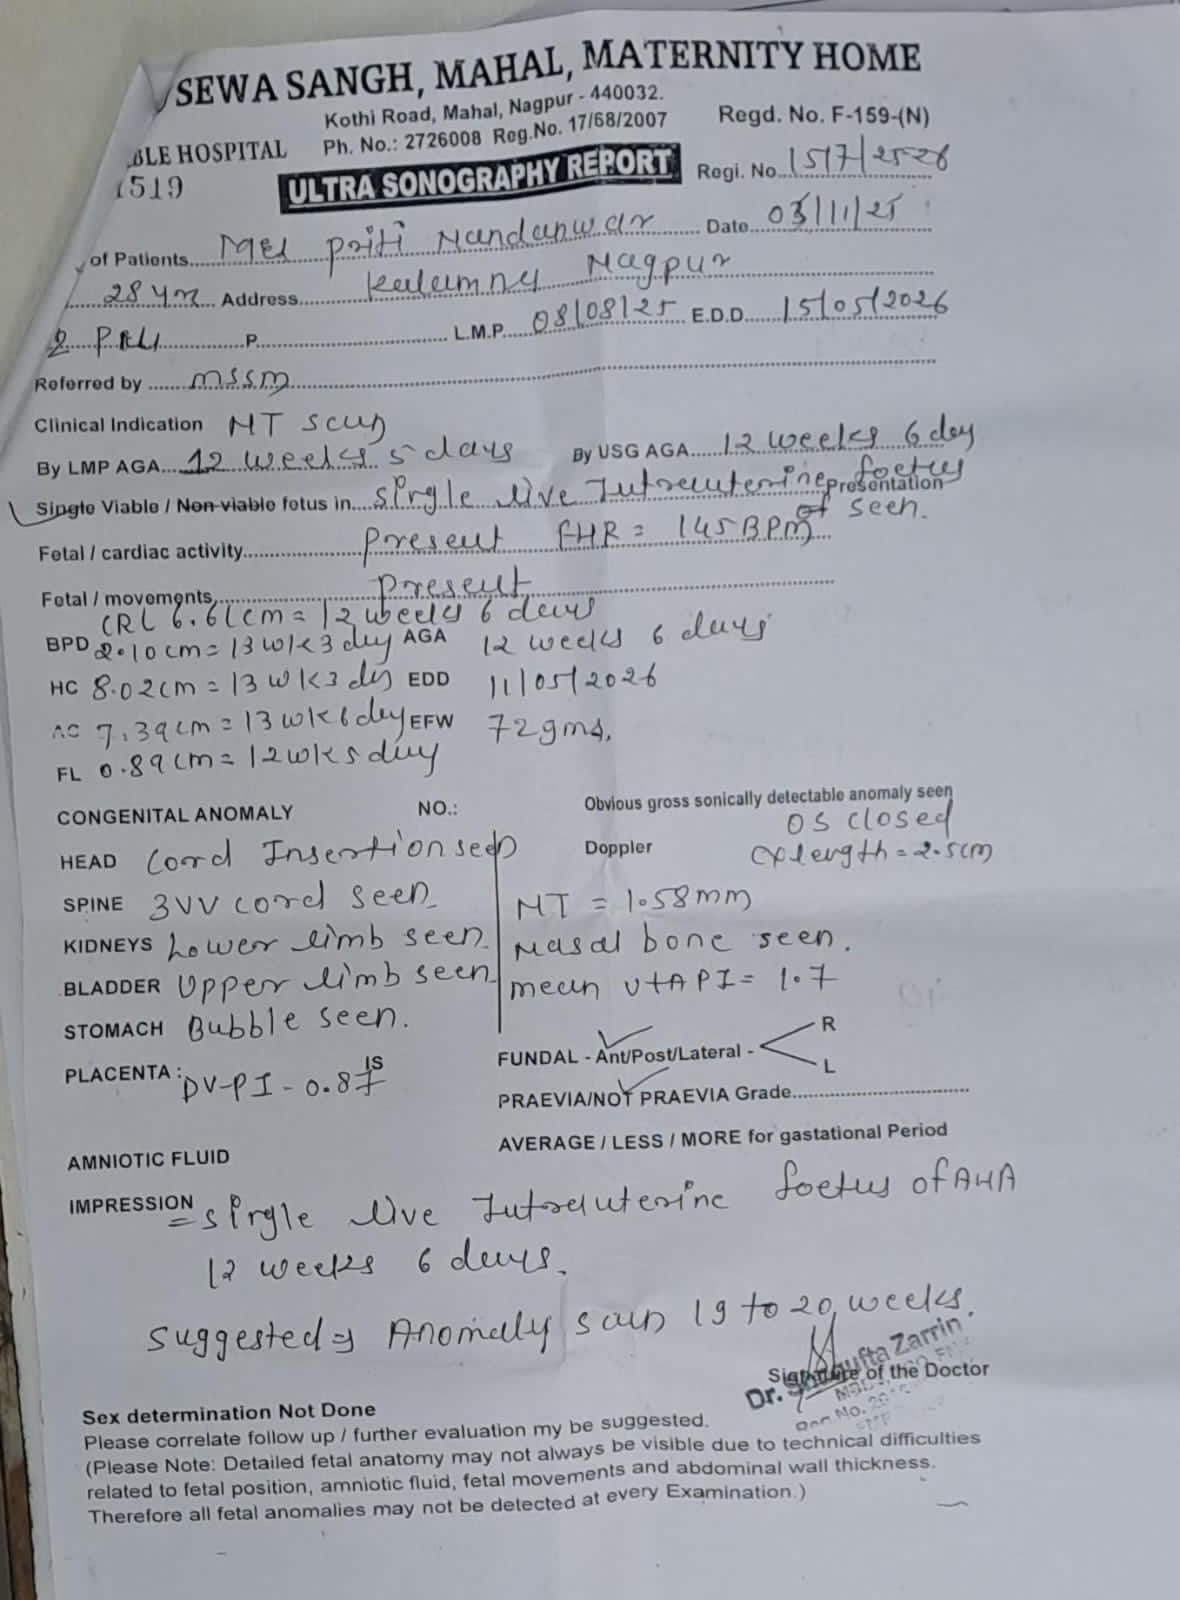 SEWA SANGH, MAHAL, MATERNITY HOME
Kothi Road, Mahal, Nagpur - 440032.
Ph. No.: 2726008 Reg.No. 17/68/2007
Regd. No. F-159-(N)
BLE HOSPITAL
1519
ULTRA SONOGRAPHY REPORT
Regi. No. 1517/2526
of Patients Priti Nandanwar Date 03/11/25
28 yrs Address Kalamna Nagpur
P L.M.P. 08/08/25 E.D.D. 15/05/2026
Referred by mssm
Clinical Indication NT scan
By LMP AGA 12 weeks 5 days By USG AGA 12 weeks 6 day
Single Viable / Non-viable fetus in single live Intrauterine foetus presentation
of seen.
Fetal / cardiac activity Present FHR = 145 BPM
Fetal / movements present
CRL 6.61cm = 12 weeks 6 days
BPD 2.10cm = 13wk 3day AGA 12 weeks 6 days
HC 8.02cm = 13wk3dy EDD 11/05/2026
AC 7.39cm = 13wk6day EFW 72gms.
FL 0.89cm = 12wk5day
CONGENITAL ANOMALY NO.: Obvious gross sonically detectable anomaly seen
OS closed
HEAD Cord Insertion seen Doppler Cx length = 2.5cm
SPINE 3VV cord seen NT = 1.58mm
KIDNEYS Lower limb seen. Nasal bone seen.
BLADDER Upper limb seen mean UtAPI = 1.7
STOMACH Bubble seen.
PLACENTA : IS FUNDAL - Ant/Post/Lateral - R L
DV-PI - 0.87
PRAEVIA/NOT PRAEVIA Grade
AVERAGE / LESS / MORE for gastational Period
AMNIOTIC FLUID
IMPRESSION = single live Intrauterine foetus of
12 weeks 6 days.
Suggested Anomaly scan 19 to 20 weeks.
Dr. Shagufta Zarrin
Signature of the Doctor
Sex determination Not Done
Please correlate follow up / further evaluation my be suggested.
(Please Note: Detailed fetal anatomy may not always be visible due to technical difficulties
related to fetal position, amniotic fluid, fetal movements and abdominal wall thickness.
Therefore all fetal anomalies may not be detected at every Examination.)